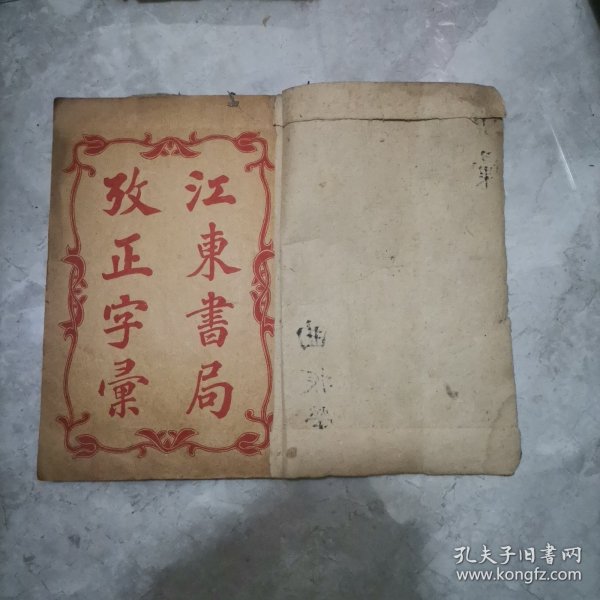 江東書局
攷正字彙
孔夫子旧書网
www.kongfz.com